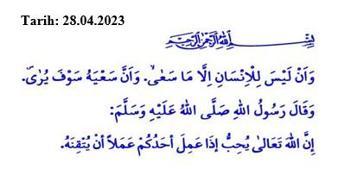 Tarih: 28.04.2023
بِسْمِ اللّٰهِ الرَّحْمٰنِ الرَّحِيمِ
وَاَنْ لَيْسَ لِلْاِنْسَانِ اِلَّا مَا سَعٰىۙ. وَاَنَّ سَعْيَهُ سَوْفَ يُرٰىۖ.
وَقَالَ رَسُولُ اللّٰهِ صَلَّى اللّٰهُ عَلَيْهِ وَسَلَّمَ:
إِنَّ اللّٰهَ تَعَالىٰ يُحِبُّ إِذَا عَمِلَ أَحَدُكُمْ عَمَلاً أَنْ يُتْقِنَهُ.